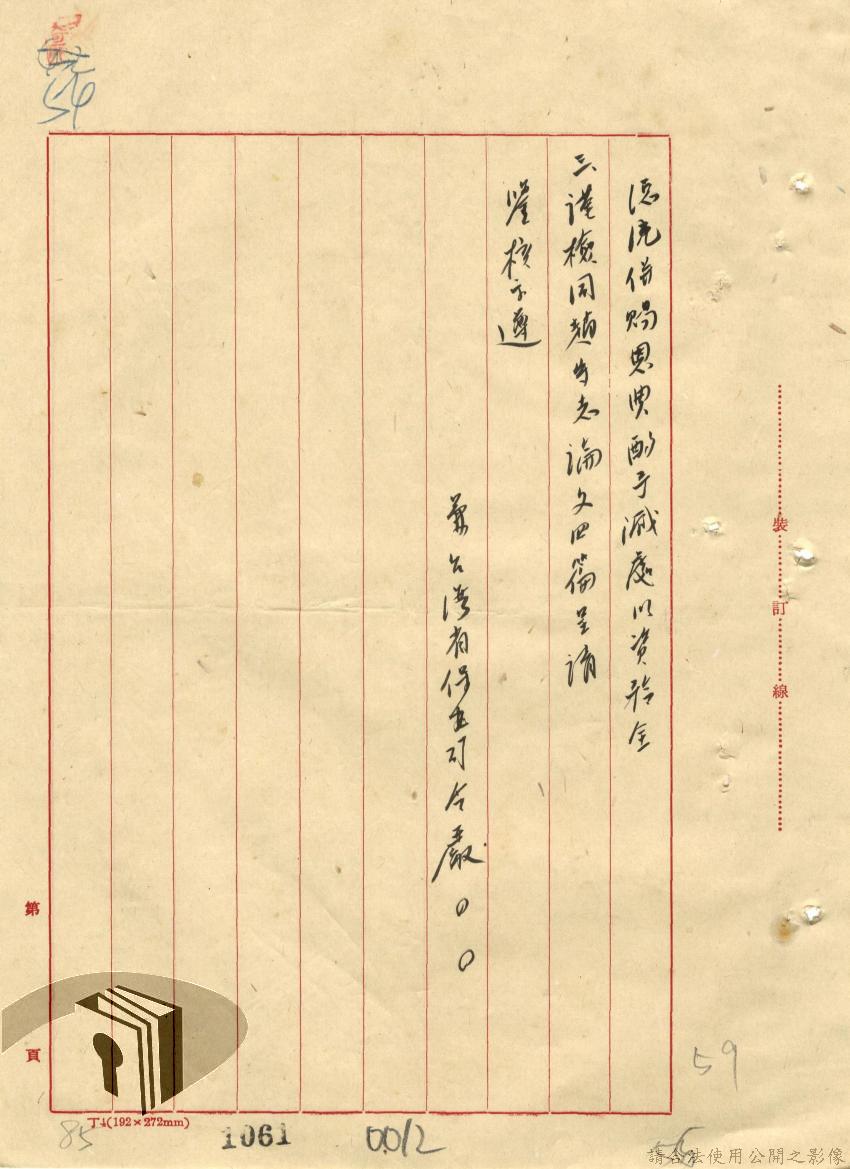 憑洗併賜恩典酌予減處以資矜全
三、謹檢同趙生志論文四篇呈請
鑒核示遵
兼台灣省保安司令嚴○○
裝訂線
第頁
丁4(192×272mm)
54
59
85
1061
0012
56
請合法使用公開之影像